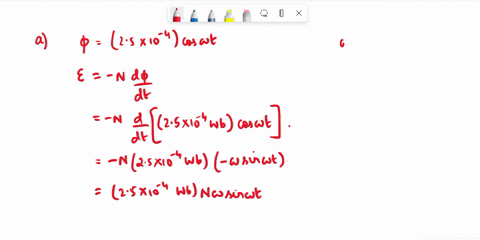 a) ϕ = (2.5 x10⁻⁴) cosωt
ε = -N dϕ/dt
= -N d/dt [(2.5 x10⁻⁴ wb) cosωt].
= -N (2.5 x10⁻⁴ wb) (-ω sinωt)
= (2.5 x10⁻⁴ wb) Nω sinωt